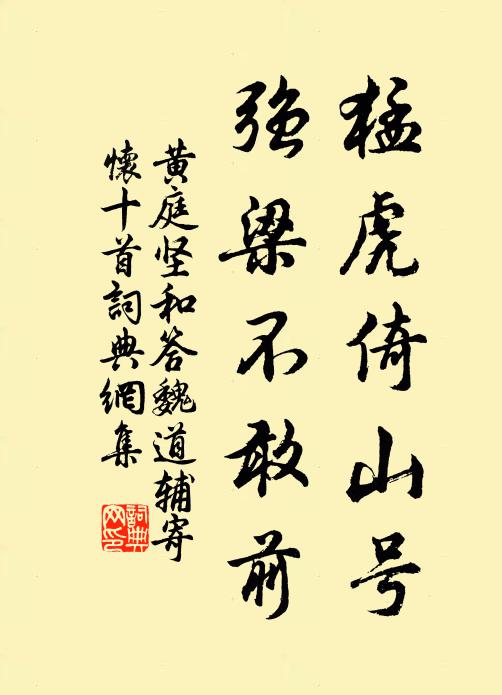 猛虎倚山号
强梁不敢前
黄庭坚和答魏道辅寄
懷十首詞典網集
詞典网印